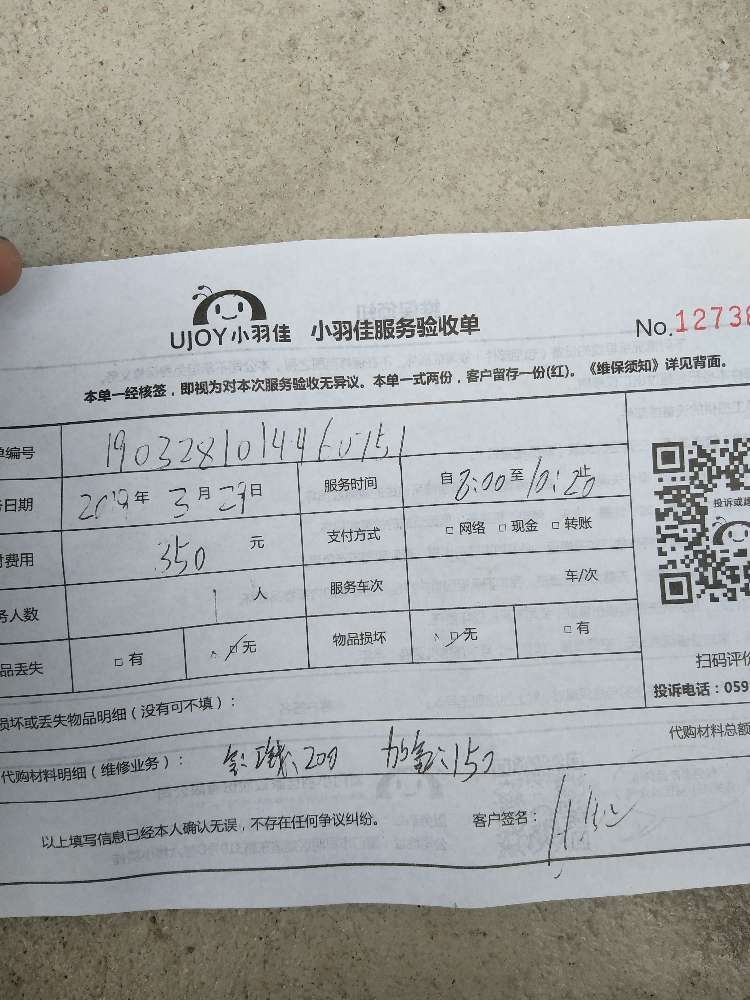 UJOY小羽佳 小羽佳服务验收单 No.12738
本单一经核签，即视为对本次服务验收无异议。本单一式两份，客户留存一份(红)。《维保须知》详见背面。
单编号
日期 2019年3月29日 服务时间 自8:00至10:20止
费用 350元 支付方式 □ 网络 □ 现金 □ 转账
务人数 1人 服务车次 车/次
品丢失 □ 有 □ 无 物品损坏 □ 无 □ 有
投诉或
扫码评价
投诉电话：059
损坏或丢失物品明细（没有可不填）：
代购材料总额
代购材料明细（维修业务）： 200 150
以上填写信息已经本人确认无误，不存在任何争议纠纷。 客户签名：